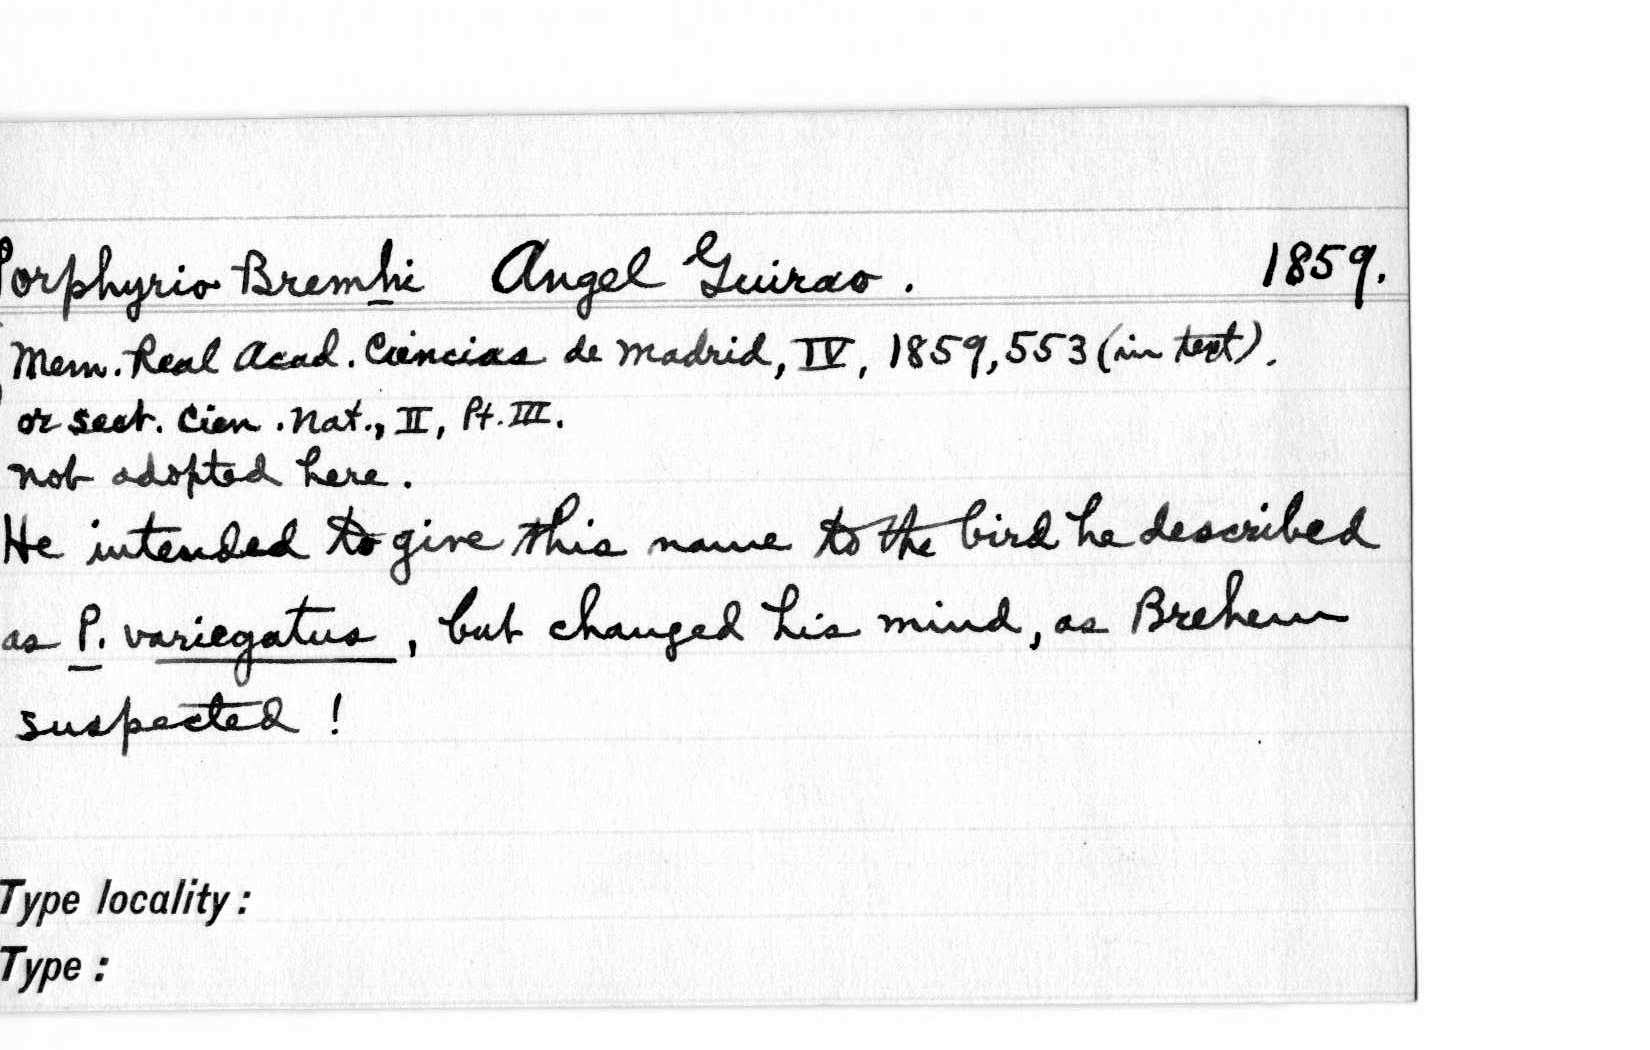 Porphyrio Bremhi Angel Guirao. 1859.
Mem. Real Acad. Ciencias de Madrid, IV, 1859, 553 (in text).
or sect. Cien. Nat., II, Pt. III.
not adopted here.
He intended to give this name to the bird he described
as P. variegatus, but changed his mind, as Brehem
suspected!
Type locality:
Type: